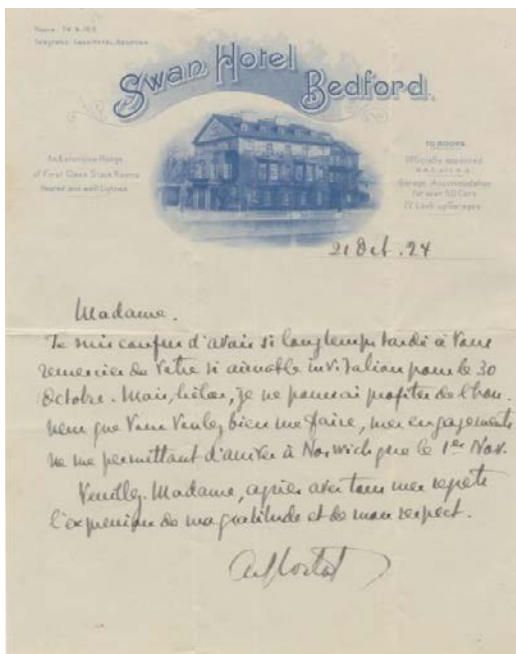 Phone: 74 & 163
Telegrams: Swan Hotel, Bedford
Swan Hotel
Bedford.
An Extensive Range
of First Class Stock Rooms
Heated and well Lighted
70 ROOMS
Officially appointed
R.A.C. and A.A.
Garage Accommodation
for over 50 Cars
22 Lock-up Garages
21 Oct. 24
Madame.
Je suis confus d'avoir si longtemps tardé à vous
remercier de votre si aimable invitation pour le 30
Octobre. Mais, hélas, je ne pourrai profiter de l'hon-
neur que vous voulez bien me faire, mes engagements
ne me permettant d'arriver à Norwich que le 1er Nov.
Veuillez, Madame, agréer avec tous mes regrets
l'expression de ma gratitude et de mon respect.